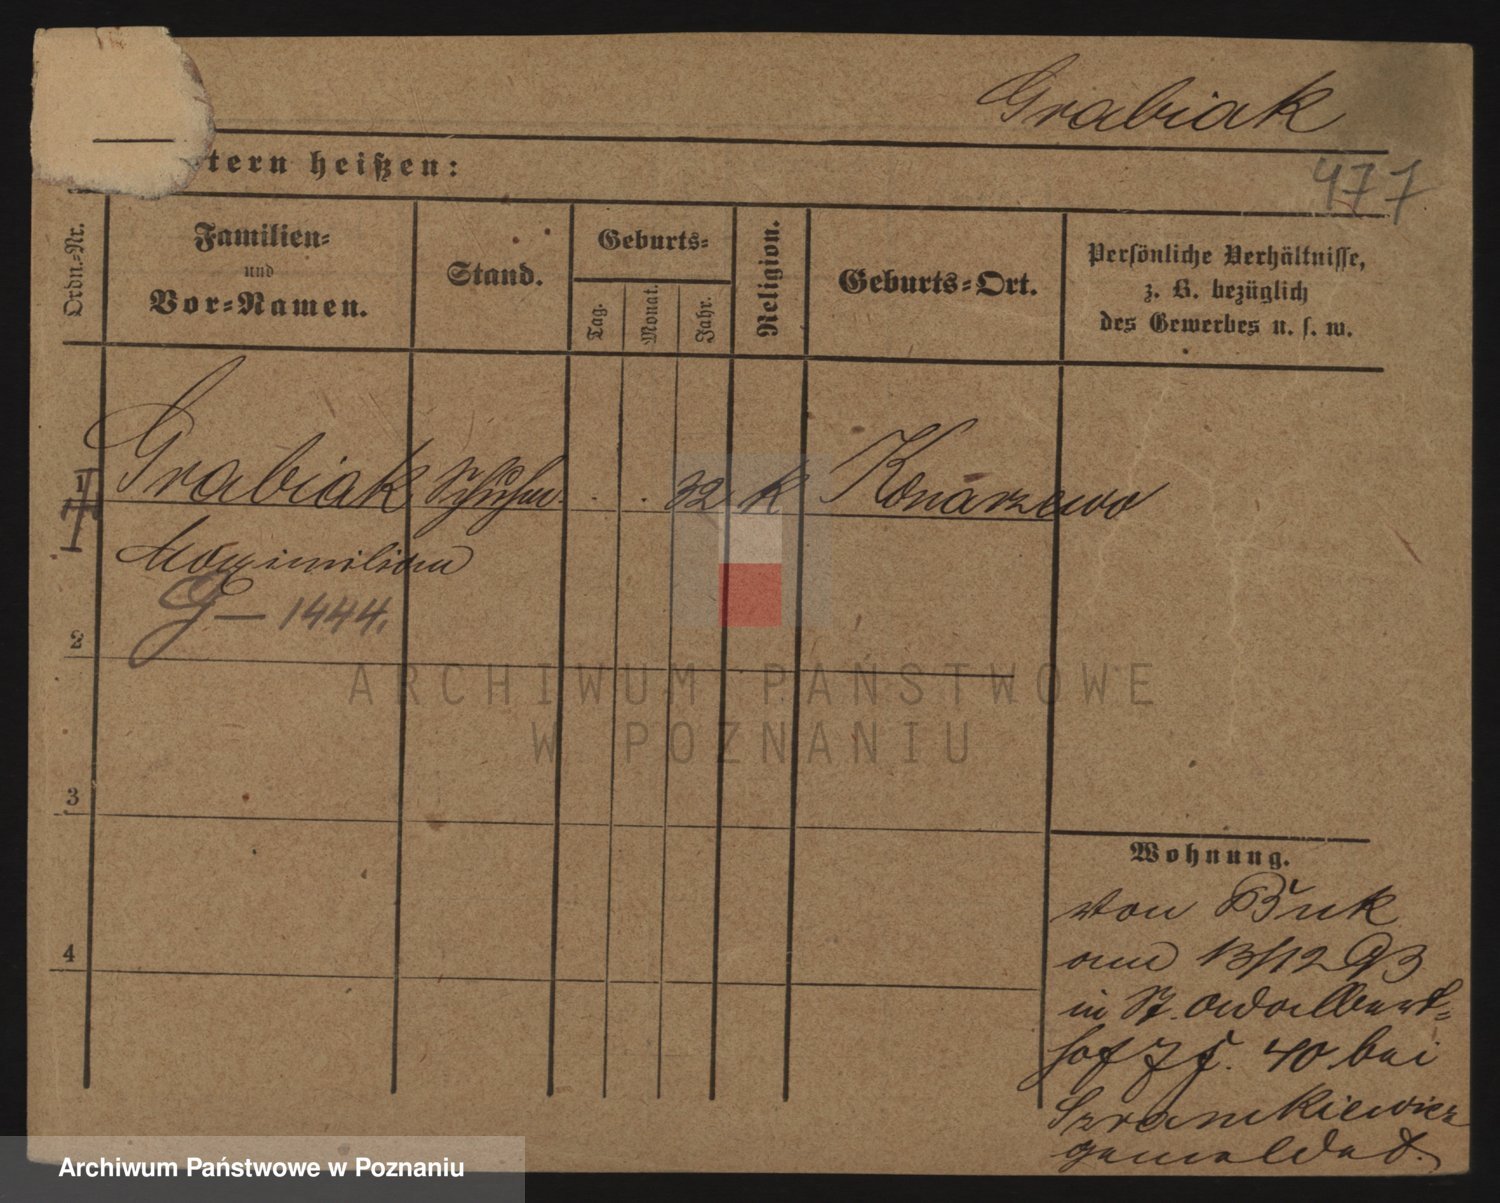 Grabiak
477
tern heißen:
Ordn.-Nr.
Familien-
und
Vor-Namen.
Stand.
Geburts-
Tag.
Monat.
Jahr.
Religion.
Geburts-Ort.
Persönliche Verhältnisse,
z. B. bezüglich
des Gewerbes u. s. w.
1
Grabiak
32
K
Konarzewo
Maximilian
G — 1444.
2
3
4
Wohnung.
von Buk
am 13/12 93
in St. Adalbert-
hof 7 40 bei
Szramkiewicz
gemeldet.
ARCHIWUM PAŃSTWOWE
W POZNANIU
Archiwum Państwowe w Poznaniu